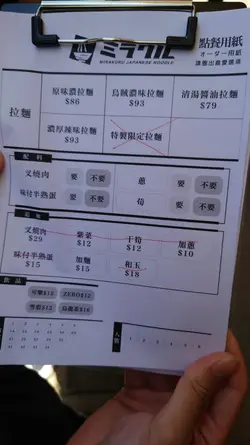 ミラクル
MIRAKURU JAPANESE NOODLE
點餐用紙
オーダー用紙
拉麵
原味濃拉麵 $86
烏賊濃拉麵 $93
清湯醬油拉麵 $79
濃厚辣味拉麵 $93
特製限定拉麵
配料
叉燒肉 要 不要
蔥 要 不要
味付半熟蛋 要 不要
筍 要 不要
叉燒肉 $29
紫菜 $12
干筍 $12
加蔥 $10
味付半熟蛋 $15
加麵 $15
和玉 $18
飲品
可樂$12 ZERO$12
雪碧$12 烏龍茶$16
人數
1 2 3 4 5 6 7 8